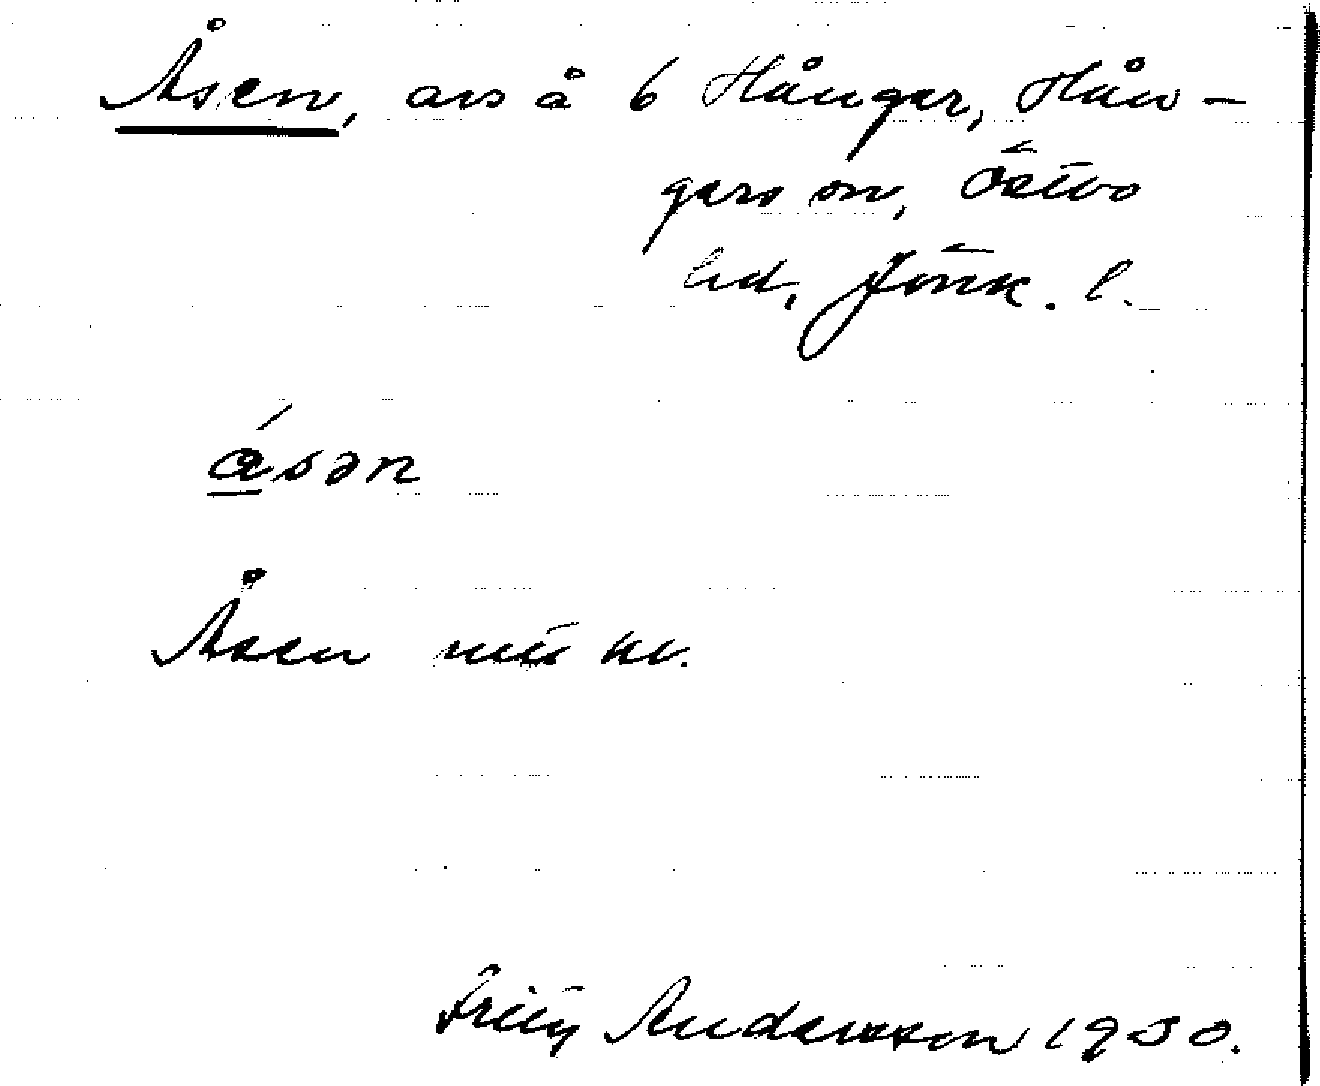 Åsen, avs å 6 Hånger, Hån-
gers sn, Östbo
hd, Jönk. l.
åsən
Åsen mtk kv.
Fritz Andersson 1930.